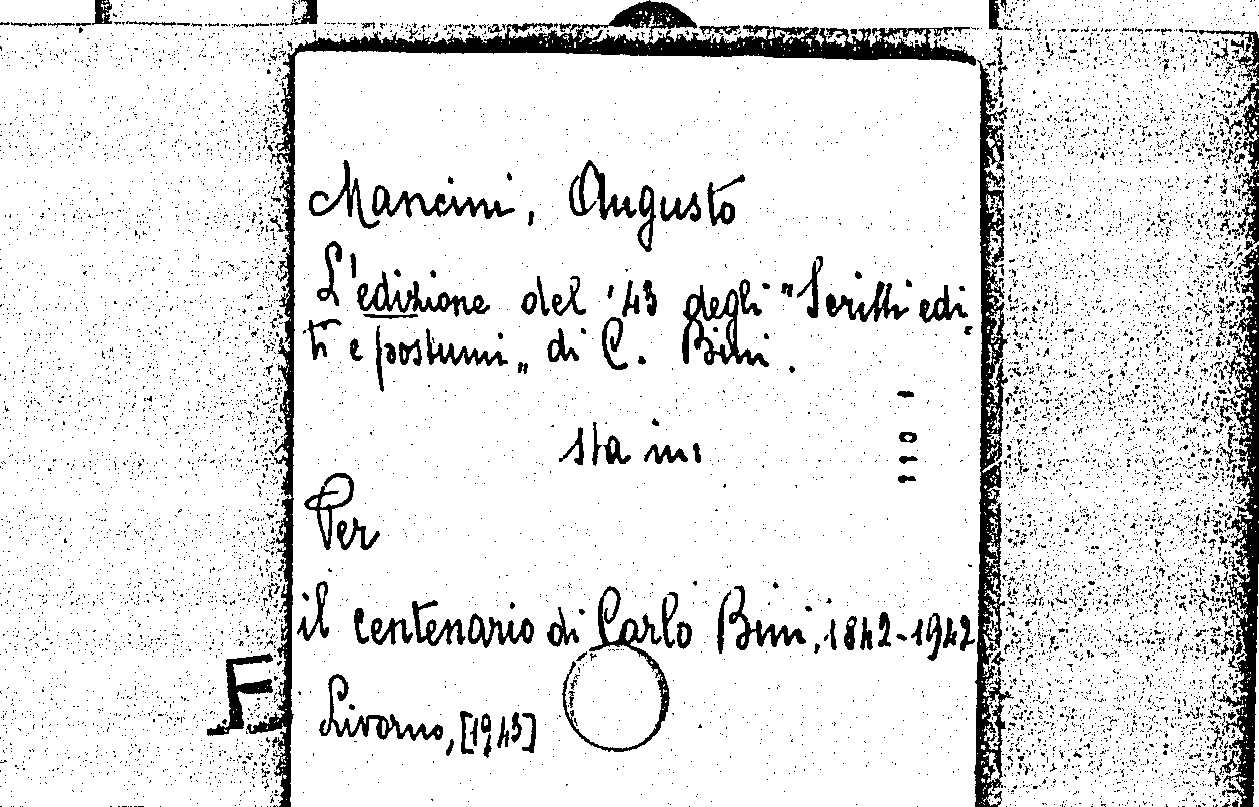 Mancini, Augusto
L'edizione del '43 degli "Scritti edi-
ti e postumi„ di C. Bini.
sta in:
1101
Per
il centenario di Carlo Bini, 1842-1942
F
Livorno, [1943]